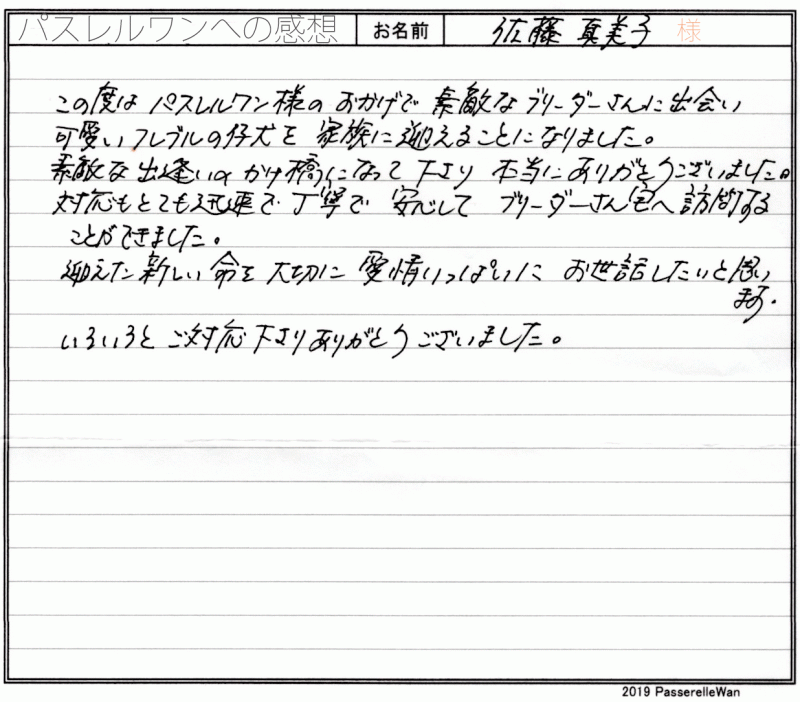 パスレルワンへの感想 お名前 佐藤 真美子 様
この度は パスレルワン様の おかげで 素敵なブリーダーさんに出会い
可愛いフレブルの仔犬を 家族に迎えることになりました。
素敵な出逢いの かけ橋になって下さり 本当にありがとうございました。
対応もとても迅速で丁寧で 安心して ブリーダーさん宅へ訪問する
ことができました。
迎えた新しい命を大切に 愛情いっぱいに お世話したいと思い
ます。
いろいろとご対応下さりありがとうございました。
2019 PasserelleWan